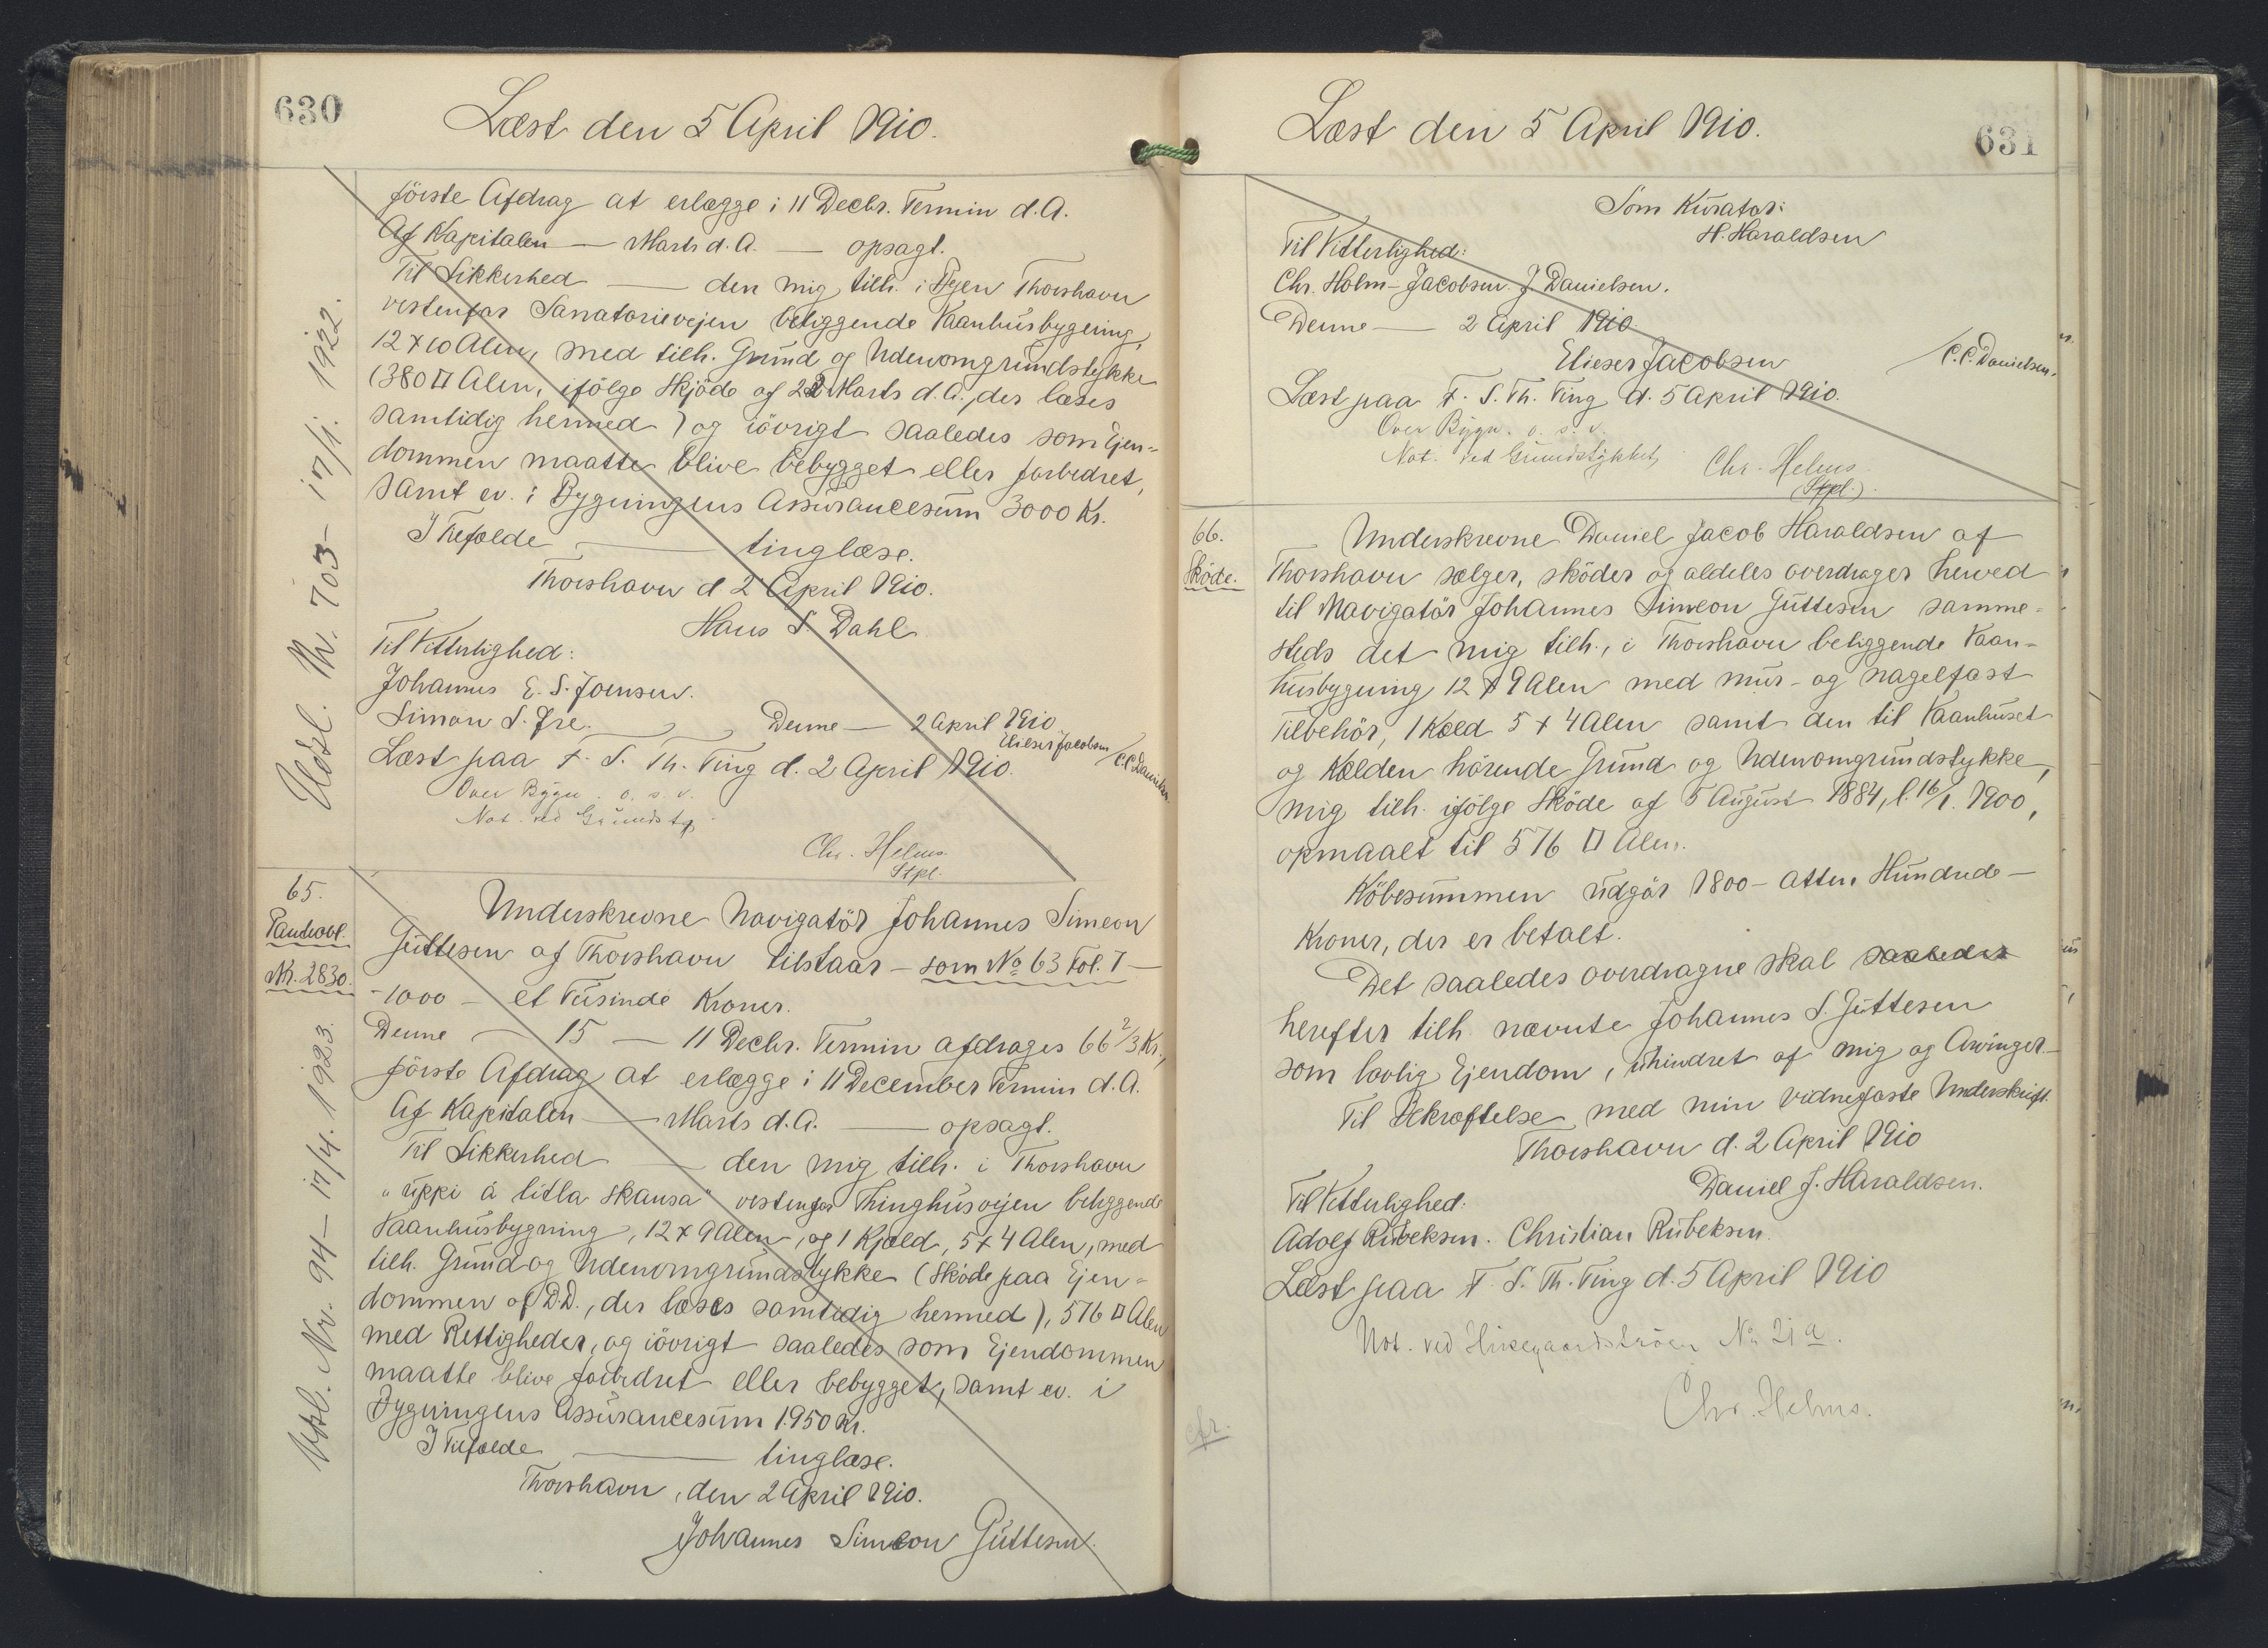 630
Læst den 5 April 1910.
förste Afdrag at erlægge i 11 Decbr. Termin d. A.
Af Kapitalen — Marts d. A. — opsagt.
Til Sikkerhed — den mig tilh. i Byen Thorshavn
vestenfor Sanatorievejen beliggende Vaanhusbygning,
12 x 10 Alen, med tilh. Grund og Udenomgrundstykke
(380 □ Alen, ifölge Skjöde af 22 Marts d. A., der læses
samtidig hermed) og iövrigt saaledes som Ejen-
dommen maatte blive bebygget eller forbedret,
samt ev. i Bygningens Assurancesum 3000 Kr.
I Tilfælde — tinglæse.
Thorshavn d 2 April 1910.
Hans S. Dahl
Til Vitterlighed:
Johannes E. S. Joensen.
Simon S. Jre.
Denne — 2 April 1910
Elieser Jacobsen / C.C. Danielsen
Læst paa F. S. Th. Ting d. 2 April 1910.
Over Bygn. o. s. v.
Not. ved Grundstk
Chr. Helms
Stpl.
Udsl. Nr. 703 - 17/1. 1922.
65.
Panteobl.
Nr. 2830.
Underskrevne Navigatör Johannes Simeon
Guttesen af Thorshavn tilstaar — som No 63 Fol. 7 —
- 1000 - et Tusinde Kroner.
Denne — 15 — 11 Decbr. Termin afdrages 66 2/3 Kr.,
förste Afdrag at erlægge i 11 December Termin d. A.
Af Kapitalen — Marts d. A. — opsagt.
Til Sikkerhed — den mig tilh. i Thorshavn
"uppi á litla skansa" vestenfor Thinghusvejen beliggende
Vaanhusbygning, 12 x 9 Alen, og 1 Kjæld, 5 x 4 Alen, med
tilh. Grund og Udenomgrundstykke (Sköde paa Ejen-
dommen af D.D., der læses samtidig hermed), 576 □ Alen
med Rettigheder, og iövrigt saaledes som Ejendommen
maatte blive forbedret eller bebygget, samt ev. i
Bygningens Assurancesum 1950 Kr.
I Tilfælde — tinglæse.
Thorshavn, den 2 April 1910.
Johannes Simeon Guttesen.
Udsl. Nr. 94 - 17/4. 1923.
631
Læst den 5 April 1910.
Som Kurator:
H. Haraldsen
Til Vitterlighed:
Chr. Holm-Jacobsen. J. Danielsen.
Denne — 2 April 1910
Elieser Jacobsen / C.C. Danielsen.
Læst paa F. S. Th. Ting d. 5 April 1910.
Over Bygn. o. s. v.
Not. ved Grundstykket
Chr. Helms
(Stpl.).
66.
Sköde.
Underskrevne Daniel Jacob Haraldsen af
Thorshavn sælger, sköder og aldeles overdrager herved
til Navigatör Johannes Simeon Guttesen samme-
steds det mig tilh., i Thorshavn beliggende Vaan-
husbygning 12 x 9 Alen med mur- og nagelfast
Tilbehör, 1 Kæld 5 x 4 Alen samt den til Vaanhuset
og Kælden hörende Grund og Udenomgrundstykke,
mig tilh. ifölge Sköde af 5 August 1884, l. 16/1. 1900,
opmaalt til 576 □ Alen.
Köbesummen udgör 1800 - Atten Hundrede -
Kroner, der er betalt.
Det saaledes overdragne skal saaledes
herefter tilh. nævnte Johannes S. Guttesen
som lovlig Ejendom, uhindret af mig og Arvinger.
Til Bekræftelse med min vidnefaste Underskrift.
Thorshavn d. 2 April 1910
Daniel J. Haraldsen.
Til Vitterlighed:
Adolf Rubeksen. Christian Rubeksen.
Læst paa F. S. Th. Ting d. 5 April 1910
Not. ved Husegaardströen No 21a.
Chr. Helms.
cfr.